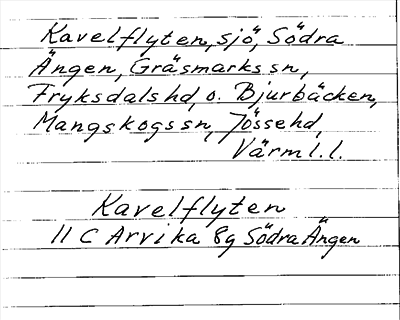 Kavelflyten, sjö, Södra
Ängen, Gräsmarks sn,
Fryksdals hd, o. Bjurbäcken,
Mangskogs sn, Jösse hd,
Värml. l.
Kavelflyten
11 C Arvika 8g Södra Ängen